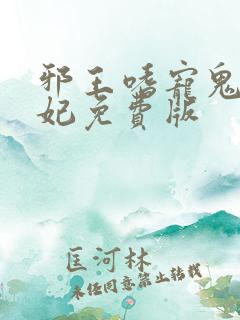 邪王嗜寵鬼
妃免費版
匡河林
未经同意禁止转载